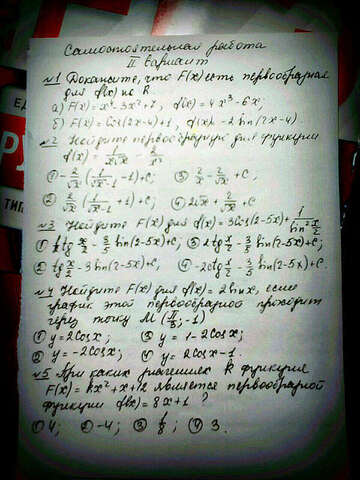 Самостоятельная работа
II вариант
№1 Докажите, что F(x) есть первообразная
для f(x) на R.
а) F(x) = x⁴-3x²+7, f(x) = 4x³-6x;
б) F(x) = cos(2x-4)+1, f(x) = -2 sin(2x-4).
№2 Найдите первообразную для функции
f(x) = 1/(x√x) - 2/x²
① -2/√x (1/√x -1)+C; ③ 2/x - 2/√x + C;
② 2/√x (1/√x +1)+C; ④ 2√x + 2/√x + C
№3 Найдите F(x) для f(x) = 3cos(2-5x) + 1/sin² x/2
① 1/2 tg x/2 - 3/5 sin(2-5x)+C; ③ 2tg x/2 - 3/5 sin(2-5x)+C;
② tg x/2 - 3 sin(2-5x)+C; ④ -2ctg x/2 - 3/5 sin(2-5x)+C.
№4 Найдите F(x) для f(x) = 2 sin x, если
график этой первообразной проходит
через точку M (π/2; -1)
① y = 2cos x; ③ y = 1-2cos x;
② y = -2cos x; ④ y = 2cos x-1.
№5 При каких значениях k функция
F(x) = kx²+x+12 является первообразной
функции f(x) = 8x+1 ?
① 4; ② -4; ③ 1/8; ④ 3.